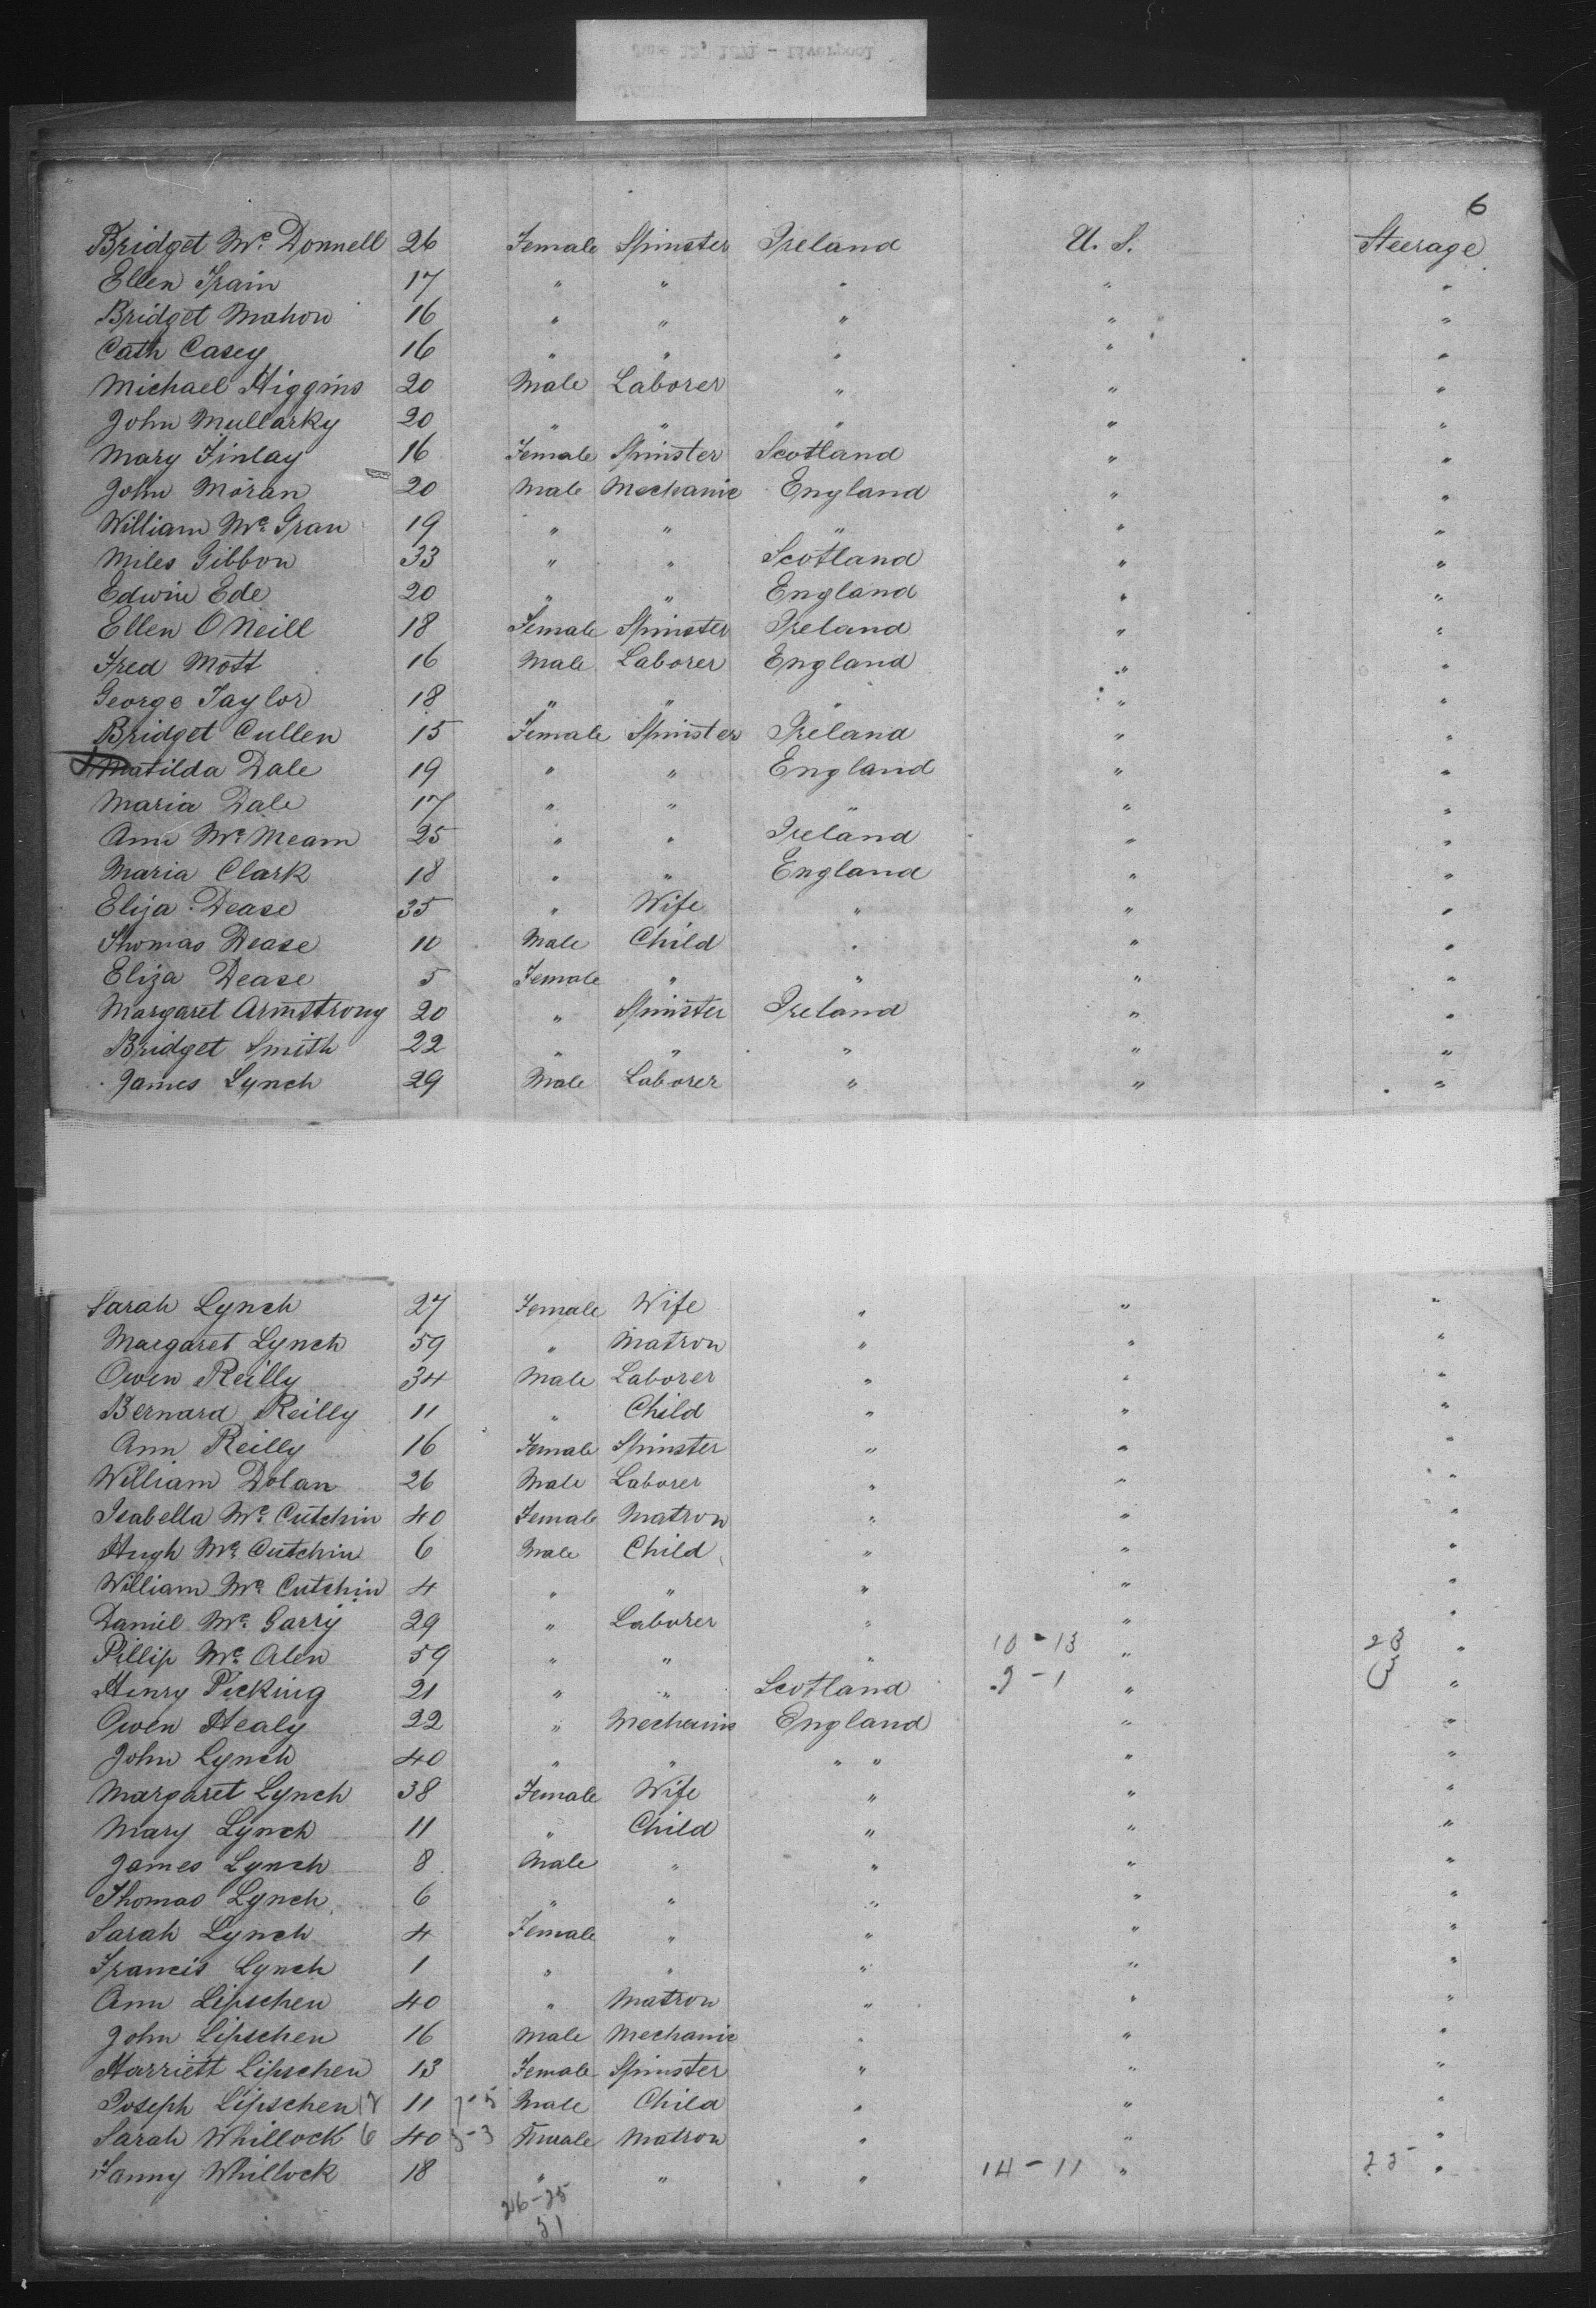 6
Bridget Mc. Donnell 26 Female Spinster Ireland U. S. Steerage
Ellen Train 17 " " " " "
Bridget Mahon 16 " " " " "
Cath Casey 16 " " " " "
Michael Higgins 20 Male Laborer " " "
John Mullarky 20 " " " " "
Mary Finlay 16 Female Spinster Scotland " "
John Moran 20 Male Mechanic England " "
William Mc. Gran 19 " " " " "
Miles Gibbon 33 " " Scotland " "
Edwin Ede 20 " " England " "
Ellen O Neill 18 Female Spinster Ireland " "
Fred Mott 16 Male Laborer England " "
George Taylor 18 " " " " "
Bridget Cullen 15 Female Spinster Ireland " "
Matilda Dale 19 " " England " "
Maria Dale 17 " " " " "
Ann Mc. Mearn 25 " " Ireland " "
Maria Clark 18 " " England " "
Eliza Dease 35 " Wife " " "
Thomas Dease 10 Male Child " " "
Eliza Dease 5 Female " " " "
Margaret Armstrong 20 " Spinster Ireland " "
Bridget Smith 22 " " " " "
James Lynch 29 Male Laborer " " "
Sarah Lynch 27 Female Wife " " "
Margaret Lynch 59 " Matron " " "
Owen Reilly 34 Male Laborer " " "
Bernard Reilly 11 " Child " " "
Ann Reilly 16 Female Spinster " " "
William Dolan 26 Male Laborer " " "
Isabella Mc. Cutchin 40 Female Matron " " "
Hugh Mc. Cutchin 6 Male Child " " "
William Mc. Cutchin 4 " " " " "
Daniel Mc. Garry 29 " Laborer " " "
Pillip Mc. Alen 59 " " " 10-13 " 23 "
Henry Picking 21 " " Scotland 2-1 " 3 "
Owen Healy 22 " Mechanic England " "
John Lynch 40 " " " " " "
Margaret Lynch 38 Female Wife " " "
Mary Lynch 11 " Child " " "
James Lynch 8 Male " " " "
Thomas Lynch 6 " " " " "
Sarah Lynch 4 Female " " " "
Francis Lynch 1 " " " " "
Ann Lipschen 40 " Matron " " "
John Lipschen 16 Male Mechanic " " "
Harriett Lipschen 13 Female Spinster " " "
Joseph Lipschen 11 Male Child " " "
Sarah Whillock 6 40 3-3 Female Matron " " "
Fanny Whillock 18 " " " 14-11 " 25 "
26-25
51